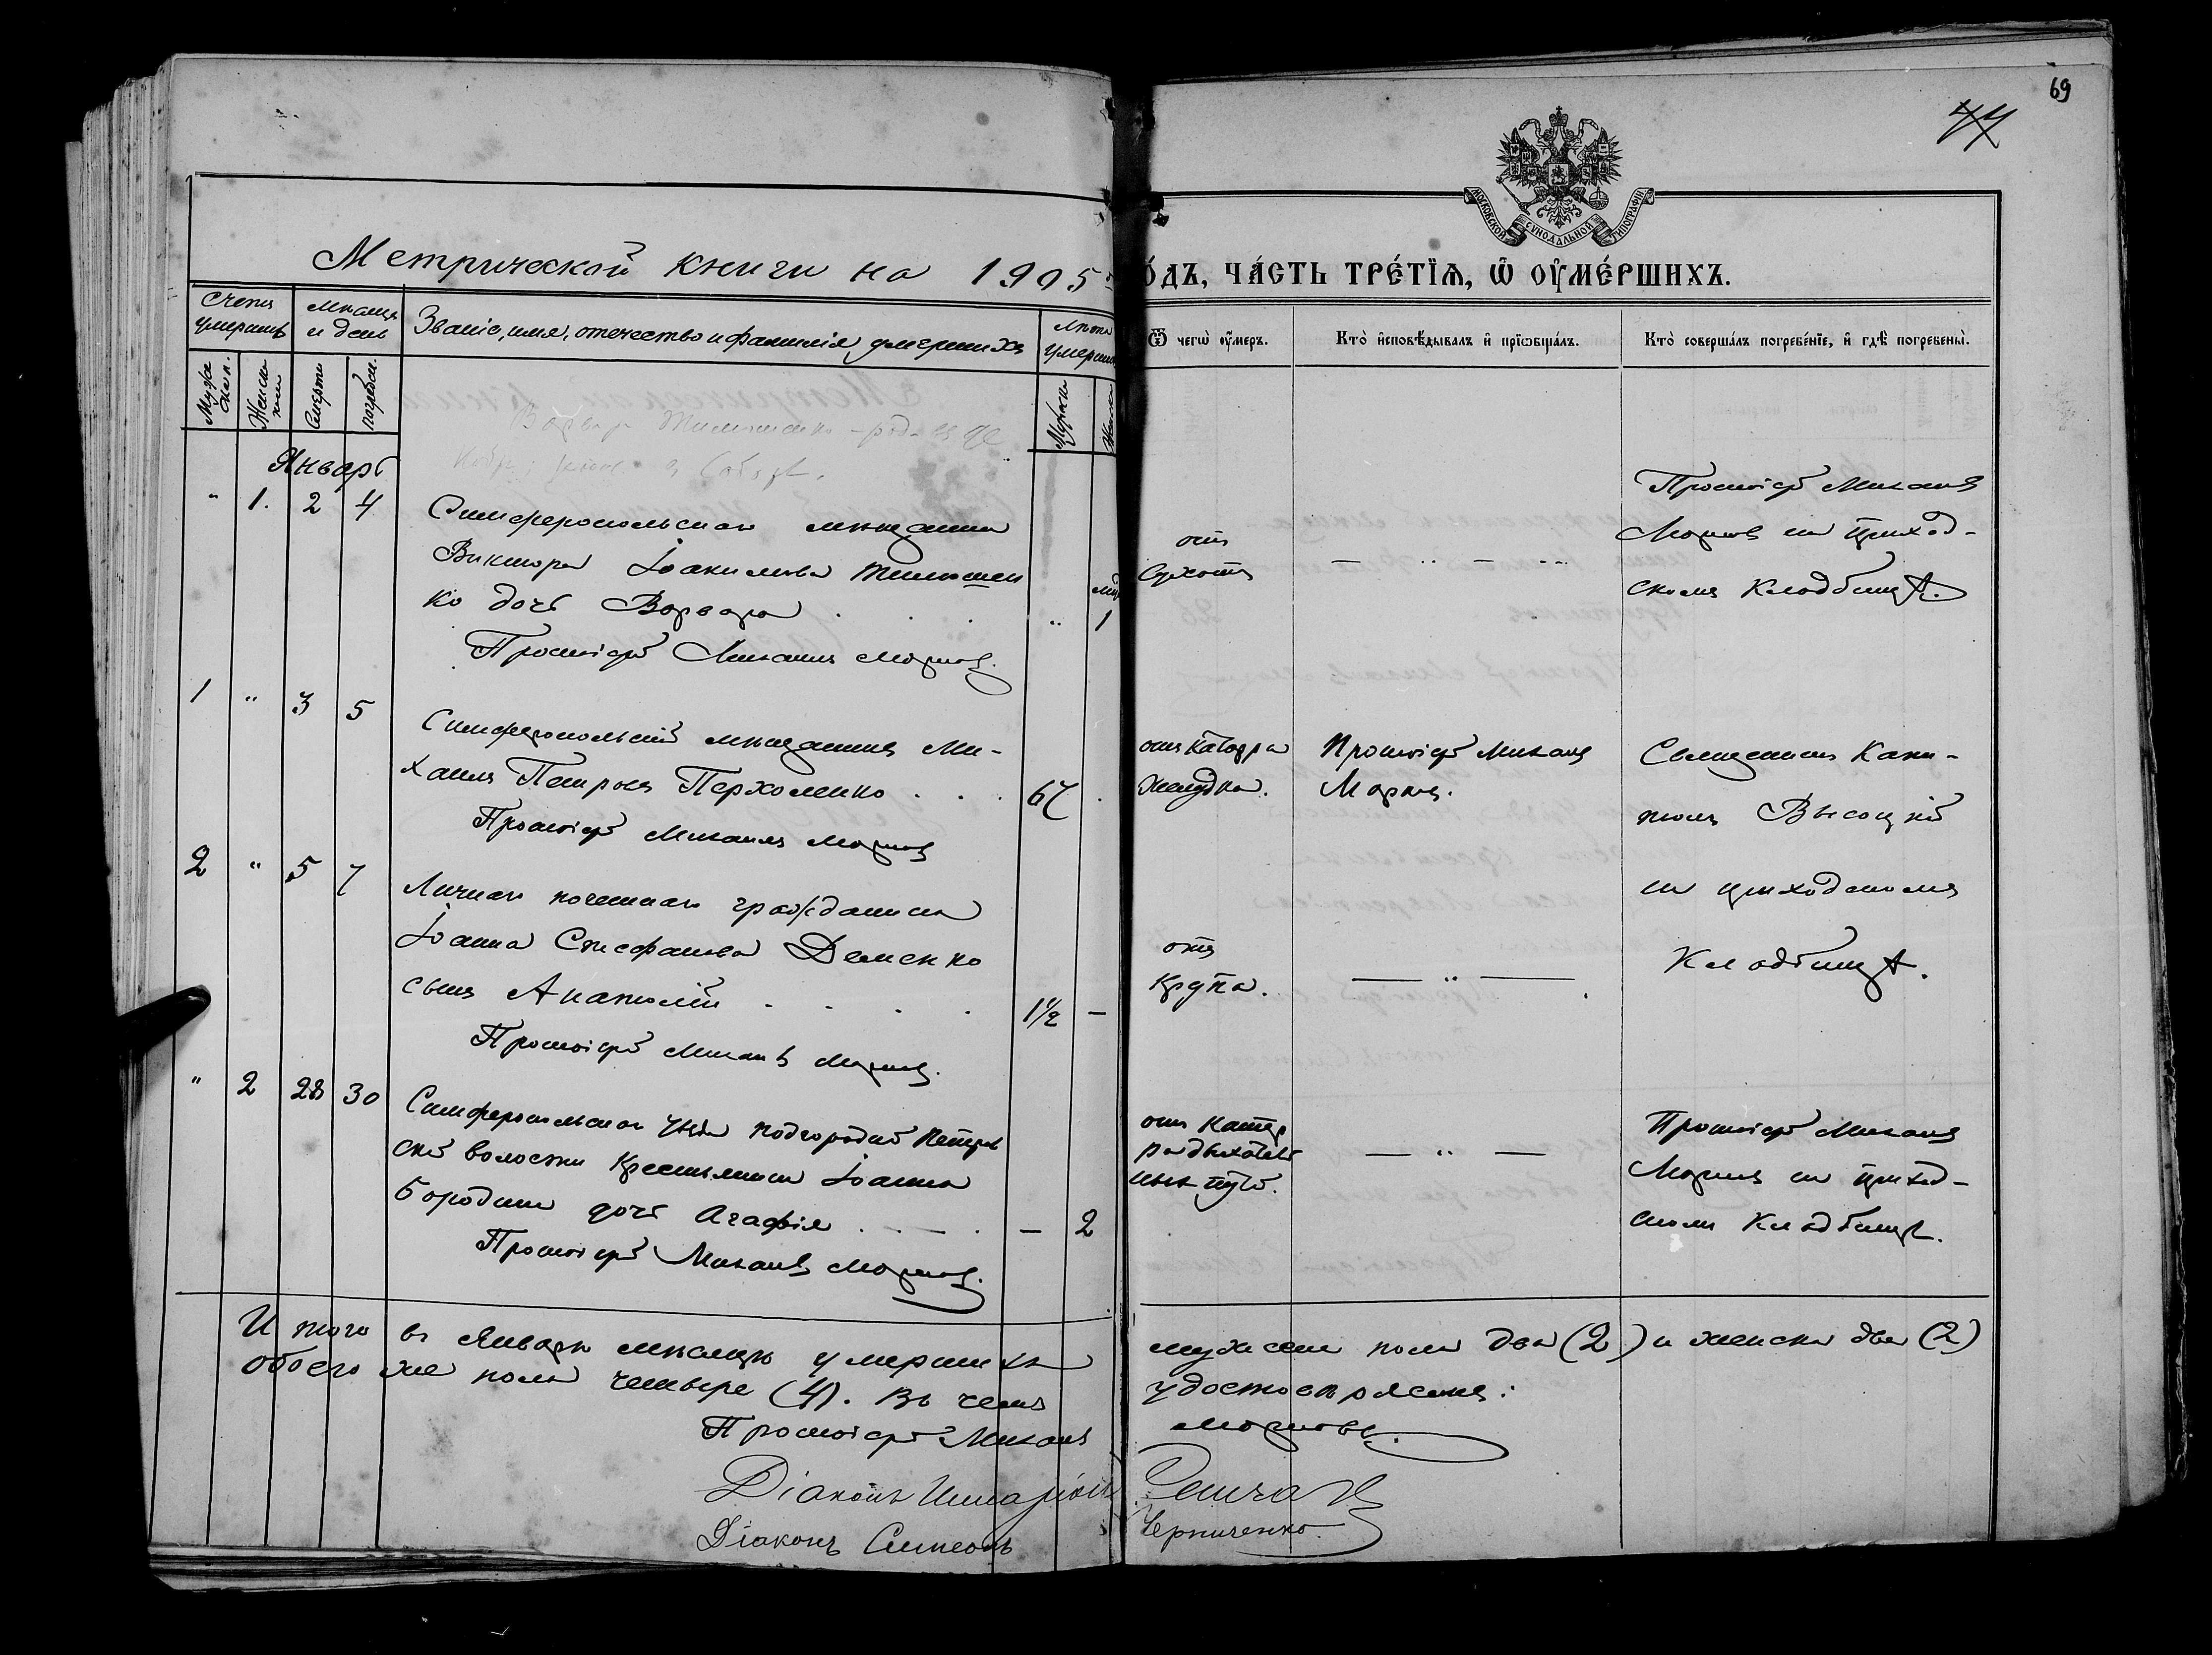 69
МОСКОВСКОЙ СУНОДАЛЬНОЙ ТИПОГРАФІИ
Метрической книги на 1905
о́дъ, ча́сть тре́тїѧ, ѡ҆ ᲂу҆ме́ршихъ.
Счетъ умершихъ
Мѣсяцъ и день
Званіе, имя, отчество и фамилія умершихъ
Лѣта умершихъ
Ѿ чегѡ̀ ᲂу҆́меръ.
Кто̀ и҆сповѣ́дывалъ и҆ прїѡбща́лъ.
Кто̀ соверша́лъ погребе́нїе, и҆ гдѣ̀ погребены̀.
Мужск. п.
Женск
Смерти
погребен.
Мужск
Январь
" 1. 2 4
Симферопольскаго мѣщанина
Виктора Іоакимова Тимошен
ко дочь Варвара
" 1
Протоіерей Михаилъ Марковъ.
отъ
Сухоты
Протоіерей Михаилъ
Марковъ на приход-
скомъ Кладбищѣ.
1 " 3 5
Симферопольскій мѣщанинъ Ми-
хаилъ Петровъ Пархоменко
67
Протоіерей Михаилъ Марковъ
отъ Катарра
Желудка.
Протоіерей Михаилъ
Марковъ.
Священникъ Капи-
толъ Высоцкій
на приходскомъ
Кладбищѣ.
2 " 5 7
Личнаго почетнаго гражданина
Іоанна Стефанова Деменко
сынъ Анатолій
1½ —
Протоіерей Михаилъ Марковъ.
отъ
Крупа.
" 2 28 30
Симферопольскаго уѣзда Подгородне Петров
ской волости Крестьянина Іоанна
Бородина дочь Агафія
— 2
Протоіерей Михаилъ Марковъ.
отъ Катар
ра дыхатель
ныхъ путей.
Протоіерей Михаилъ
Марковъ на приход-
скомъ Кладбищѣ.
Итого въ Январѣ мѣсяцѣ умершихъ мужескаго пола два (2) и женска два (2)
обоего же пола четыре (4). Въ чемъ удостовѣряемъ:
Протоіерей Михаилъ Марковъ.
Діаконъ Иларіонъ
Діаконъ Симеонъ Черниченко.